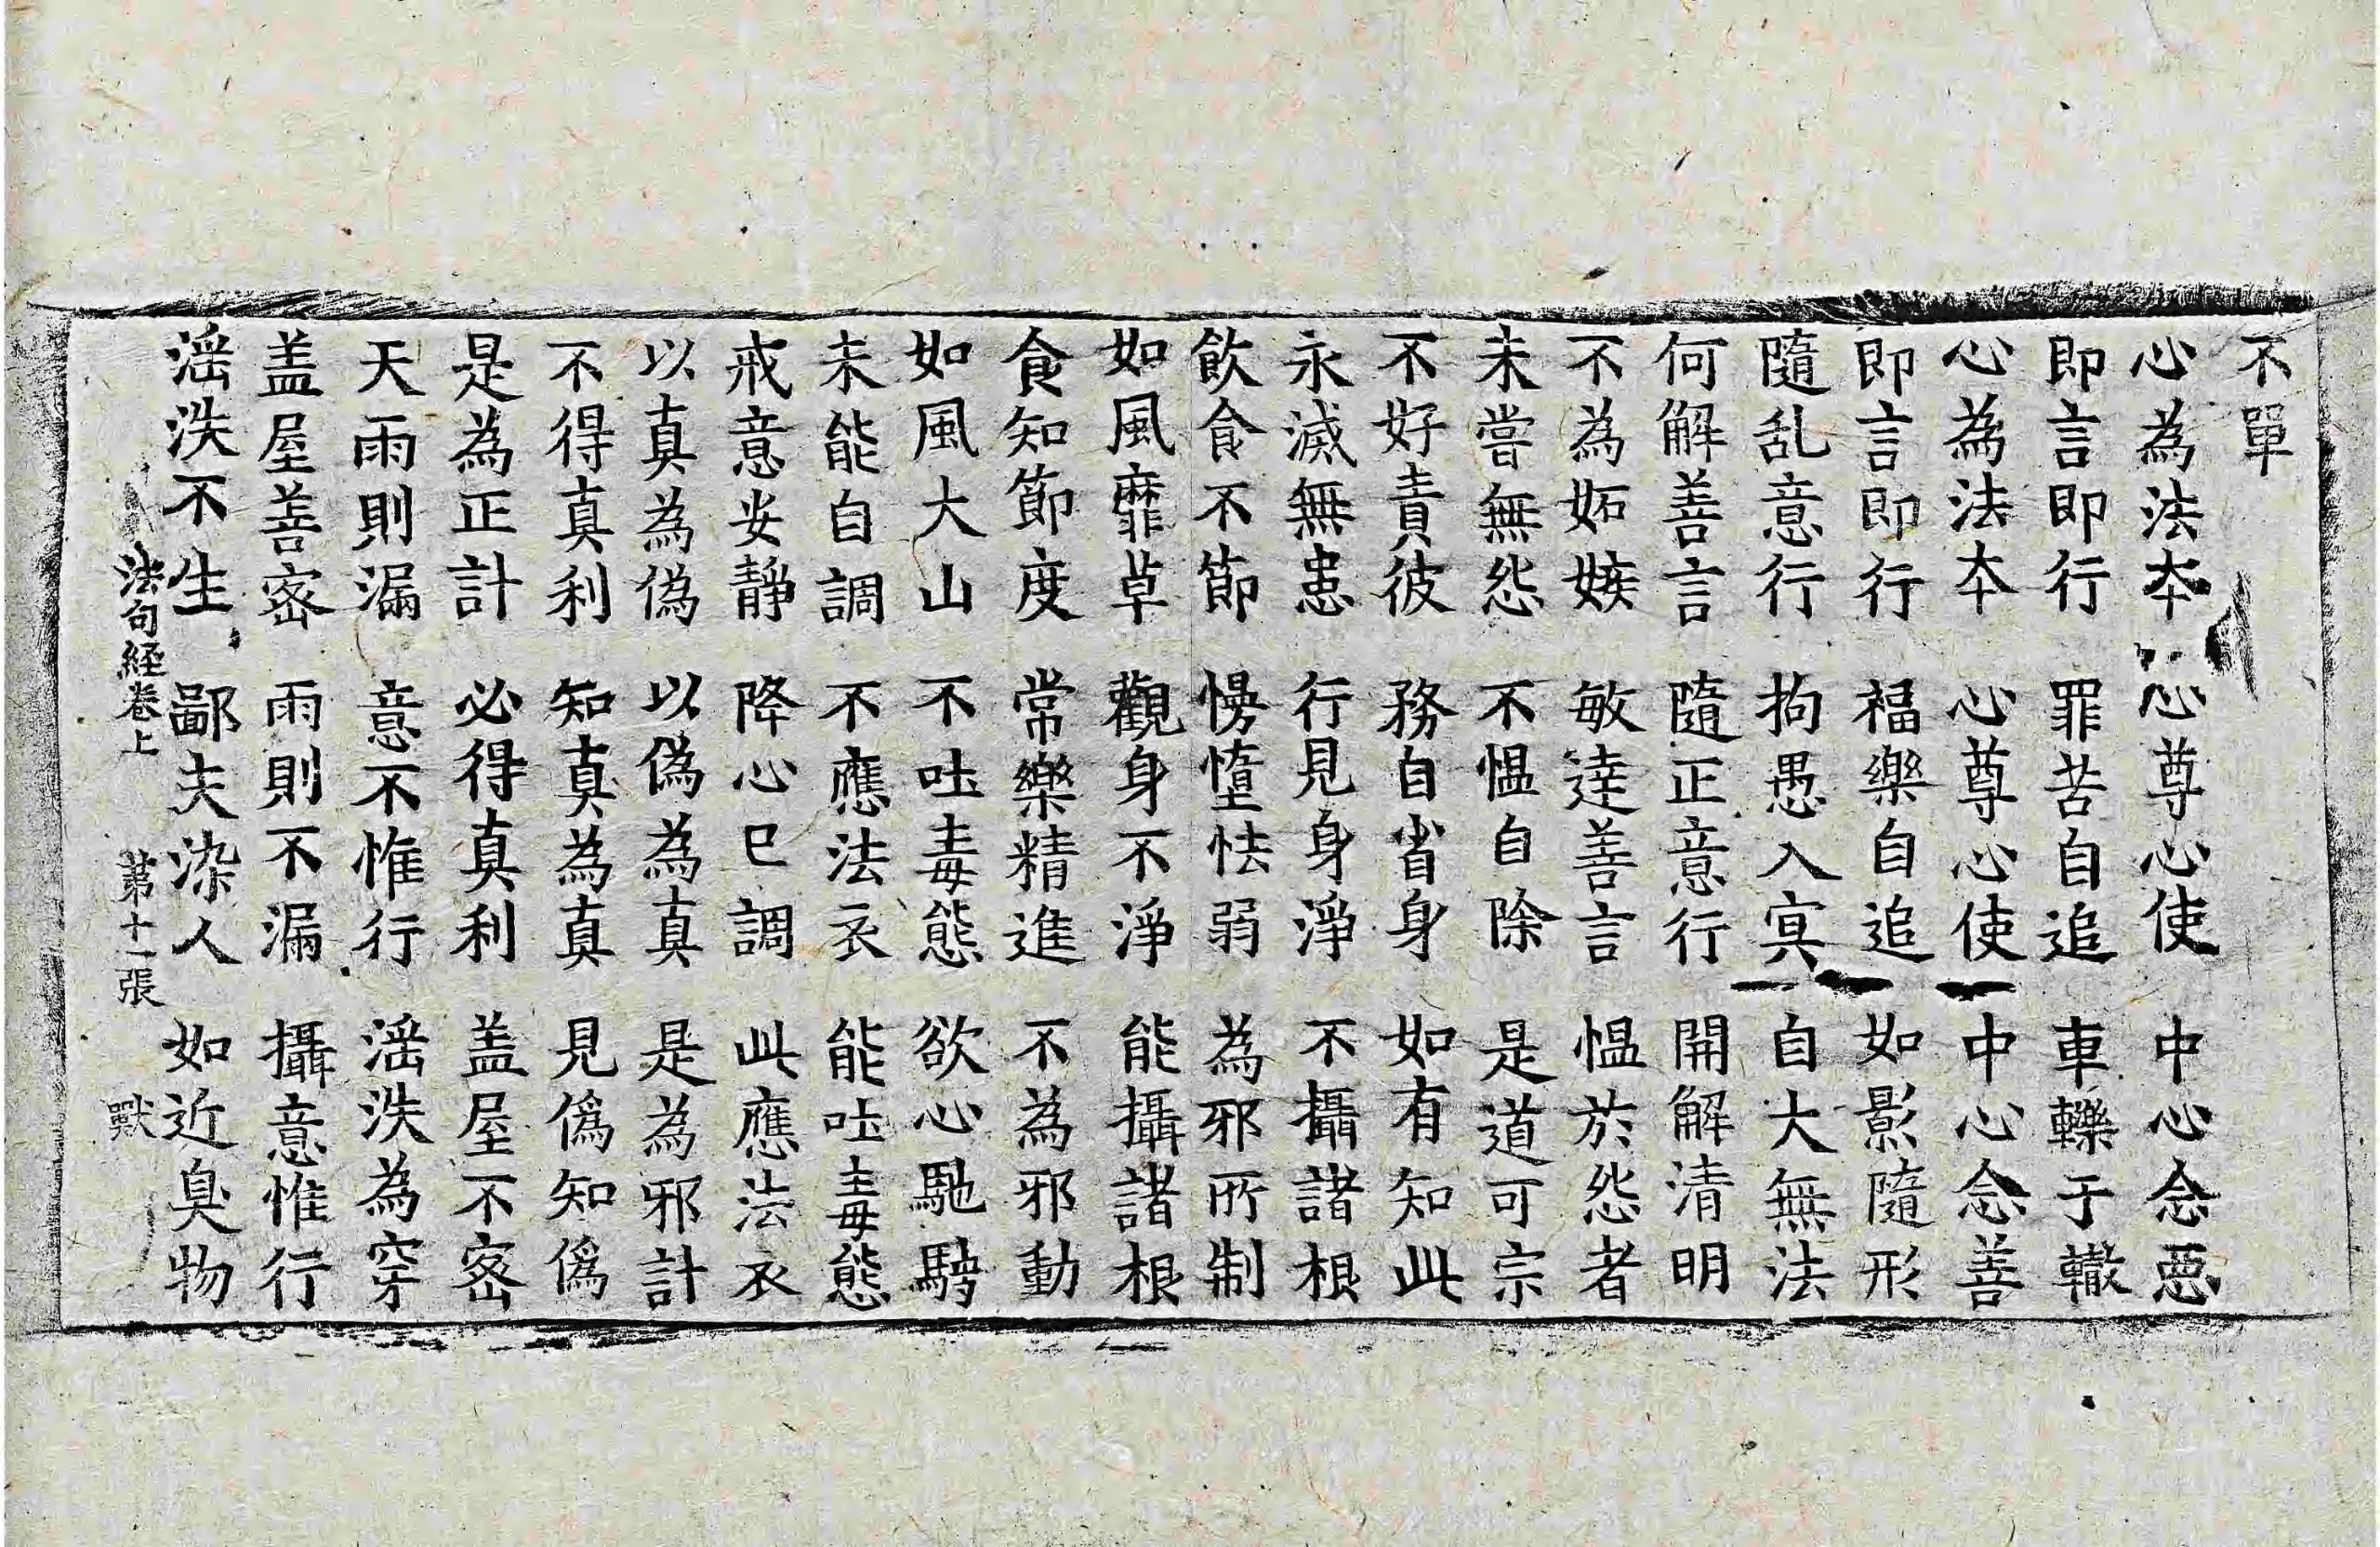 不單
心為法本 心尊心使 中心念惡
即言即行 罪苦自追 車轢于轍
心為法本 心尊心使 中心念善
即言即行 福樂自追 如影隨形
隨乱意行 拘愚入㝠 自大無法
何解善言 隨正意行 開解清明
不為妬嫉 敏達善言 愠於怨者
未嘗無怨 不愠自除 是道可宗
不好責彼 務自省身 如有知此
永滅無患 行見身淨 不攝諸根
飲食不節 慢墮怯弱 為邪所制
如風靡草 觀身不淨 能攝諸根
食知節度 常樂精進 不為邪動
如風大山 不吐毒態 欲心馳騁
未能自調 不應法衣 能吐毒態
戒意安靜 降心已調 此應法衣
以真為偽 以偽為真 是為邪計
不得真利 知真為真 見偽知偽
是為正計 必得真利 盖屋不密
天雨則漏 意不惟行 淫泆為穿
盖屋善密 雨則不漏 攝意惟行
淫泆不生 鄙夫染人 如近臭物
法句經卷上 第十一張 獸